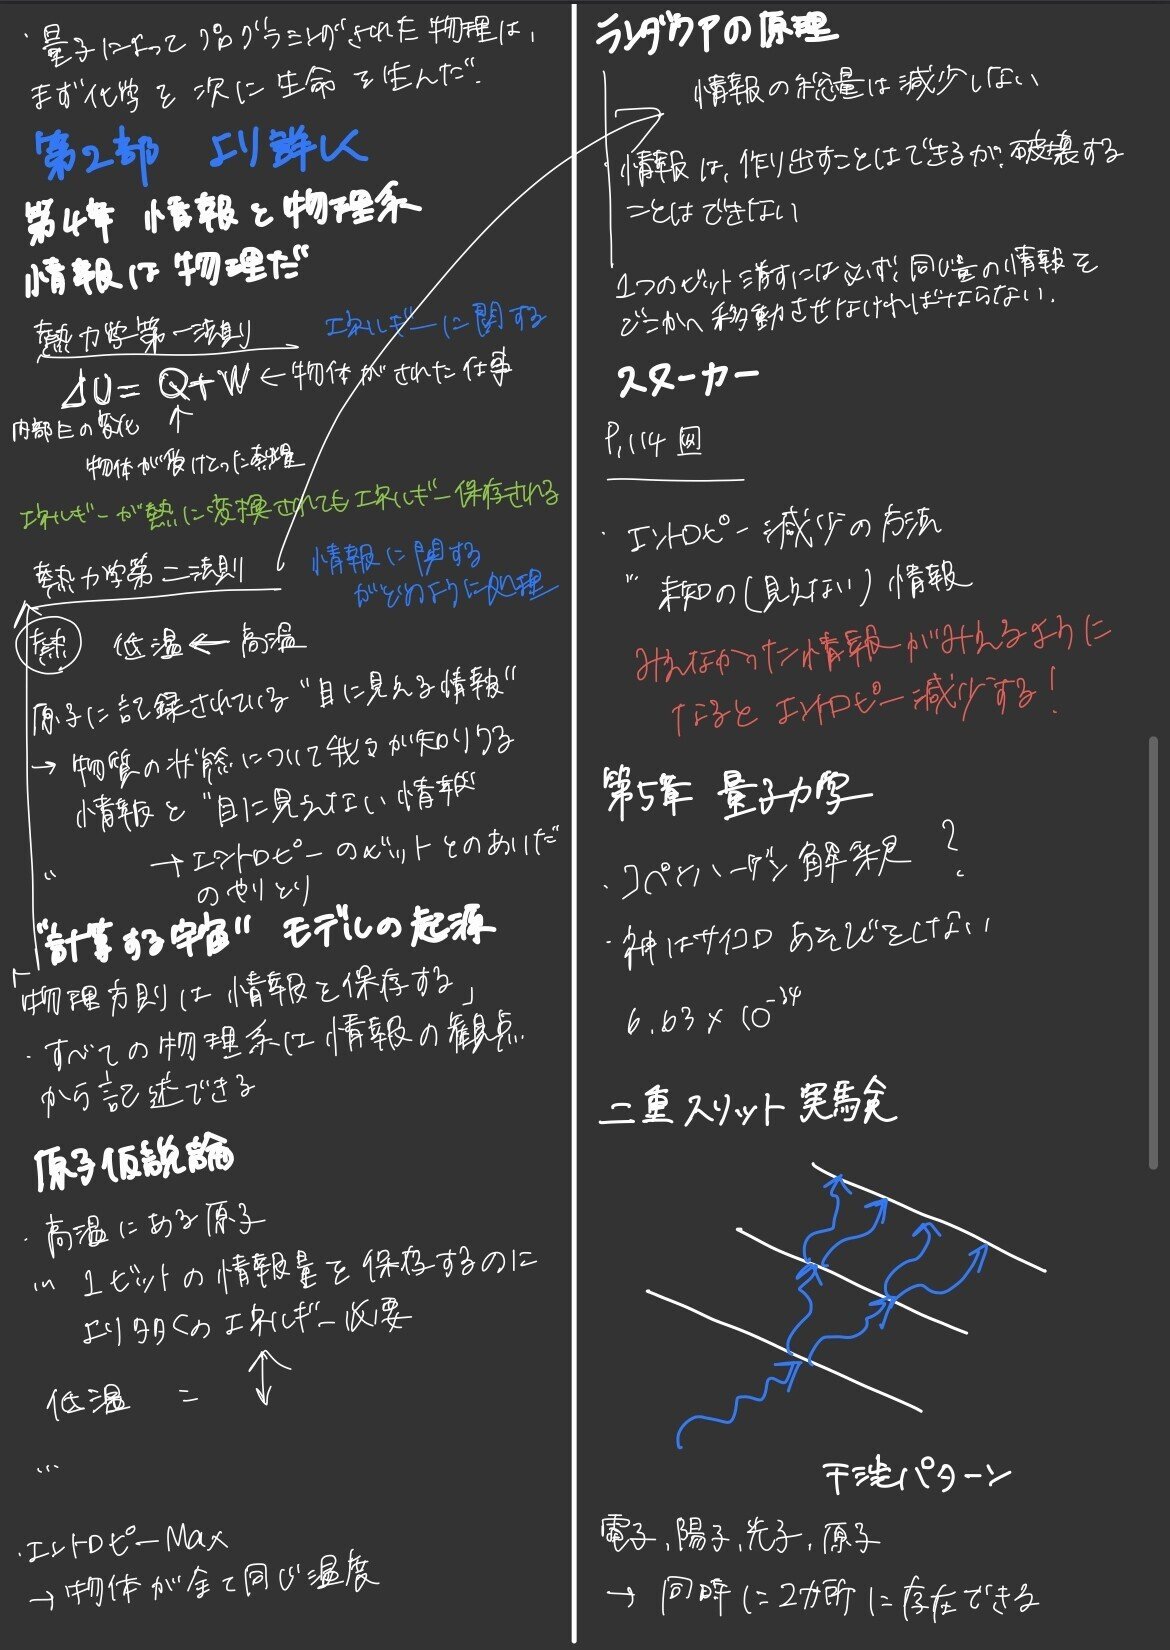 ・量子によってプログラミングされた物理は、
まず化学を次に生命を生んだ".
第2部 より詳しく
第4章 情報と物理系
情報は物理だ
熱力学第一法則 エネルギーに関する
ΔU= Q+W ← 物体がされた仕事
内部Eの変化 ↑
物体が受けとった熱量
エネルギーが熱に変換されてもエネルギー保存される
熱力学第二法則 情報に関する
がどのように処理
熱 低温 ← 高温
原子に記録されている"目に見える情報"
→ 物質の状態について我々が知りうる
情報と"目に見えない情報"
〃 → エントロピーのビットとのあいだ
のやりとり
"計算する宇宙" モデルの起源
「物理方則は情報を保存する」
・すべての物理系は情報の観点
から記述できる
原子仮説論
・高温にある原子
… 1ビットの情報量を保存するのに
より多くのエネルギー必要
↕
低温 =
…
・エントロピーMax
→ 物体が全て同じ温度
ランダウアの原理
情報の総量は減少しない
・情報は、作り出すことはできるが、破壊する
ことはできない
1つのビット消すには必ず、同じ量の情報を
どこかへ移動させなければならない.
スターカー
P,114 図
・エントロピー減少の方法
〃 未知の(見えない)情報
みえなかった情報がみえるように
なるとエントロピー減少する!
第5章 量子力学
・コペンハーゲン解釈 ?
・神はサイコロあそびをしない
6.63×10⁻³⁴
二重スリット実験
干渉パターン
電子,陽子,光子,原子
→ 同時に2カ所に存在できる